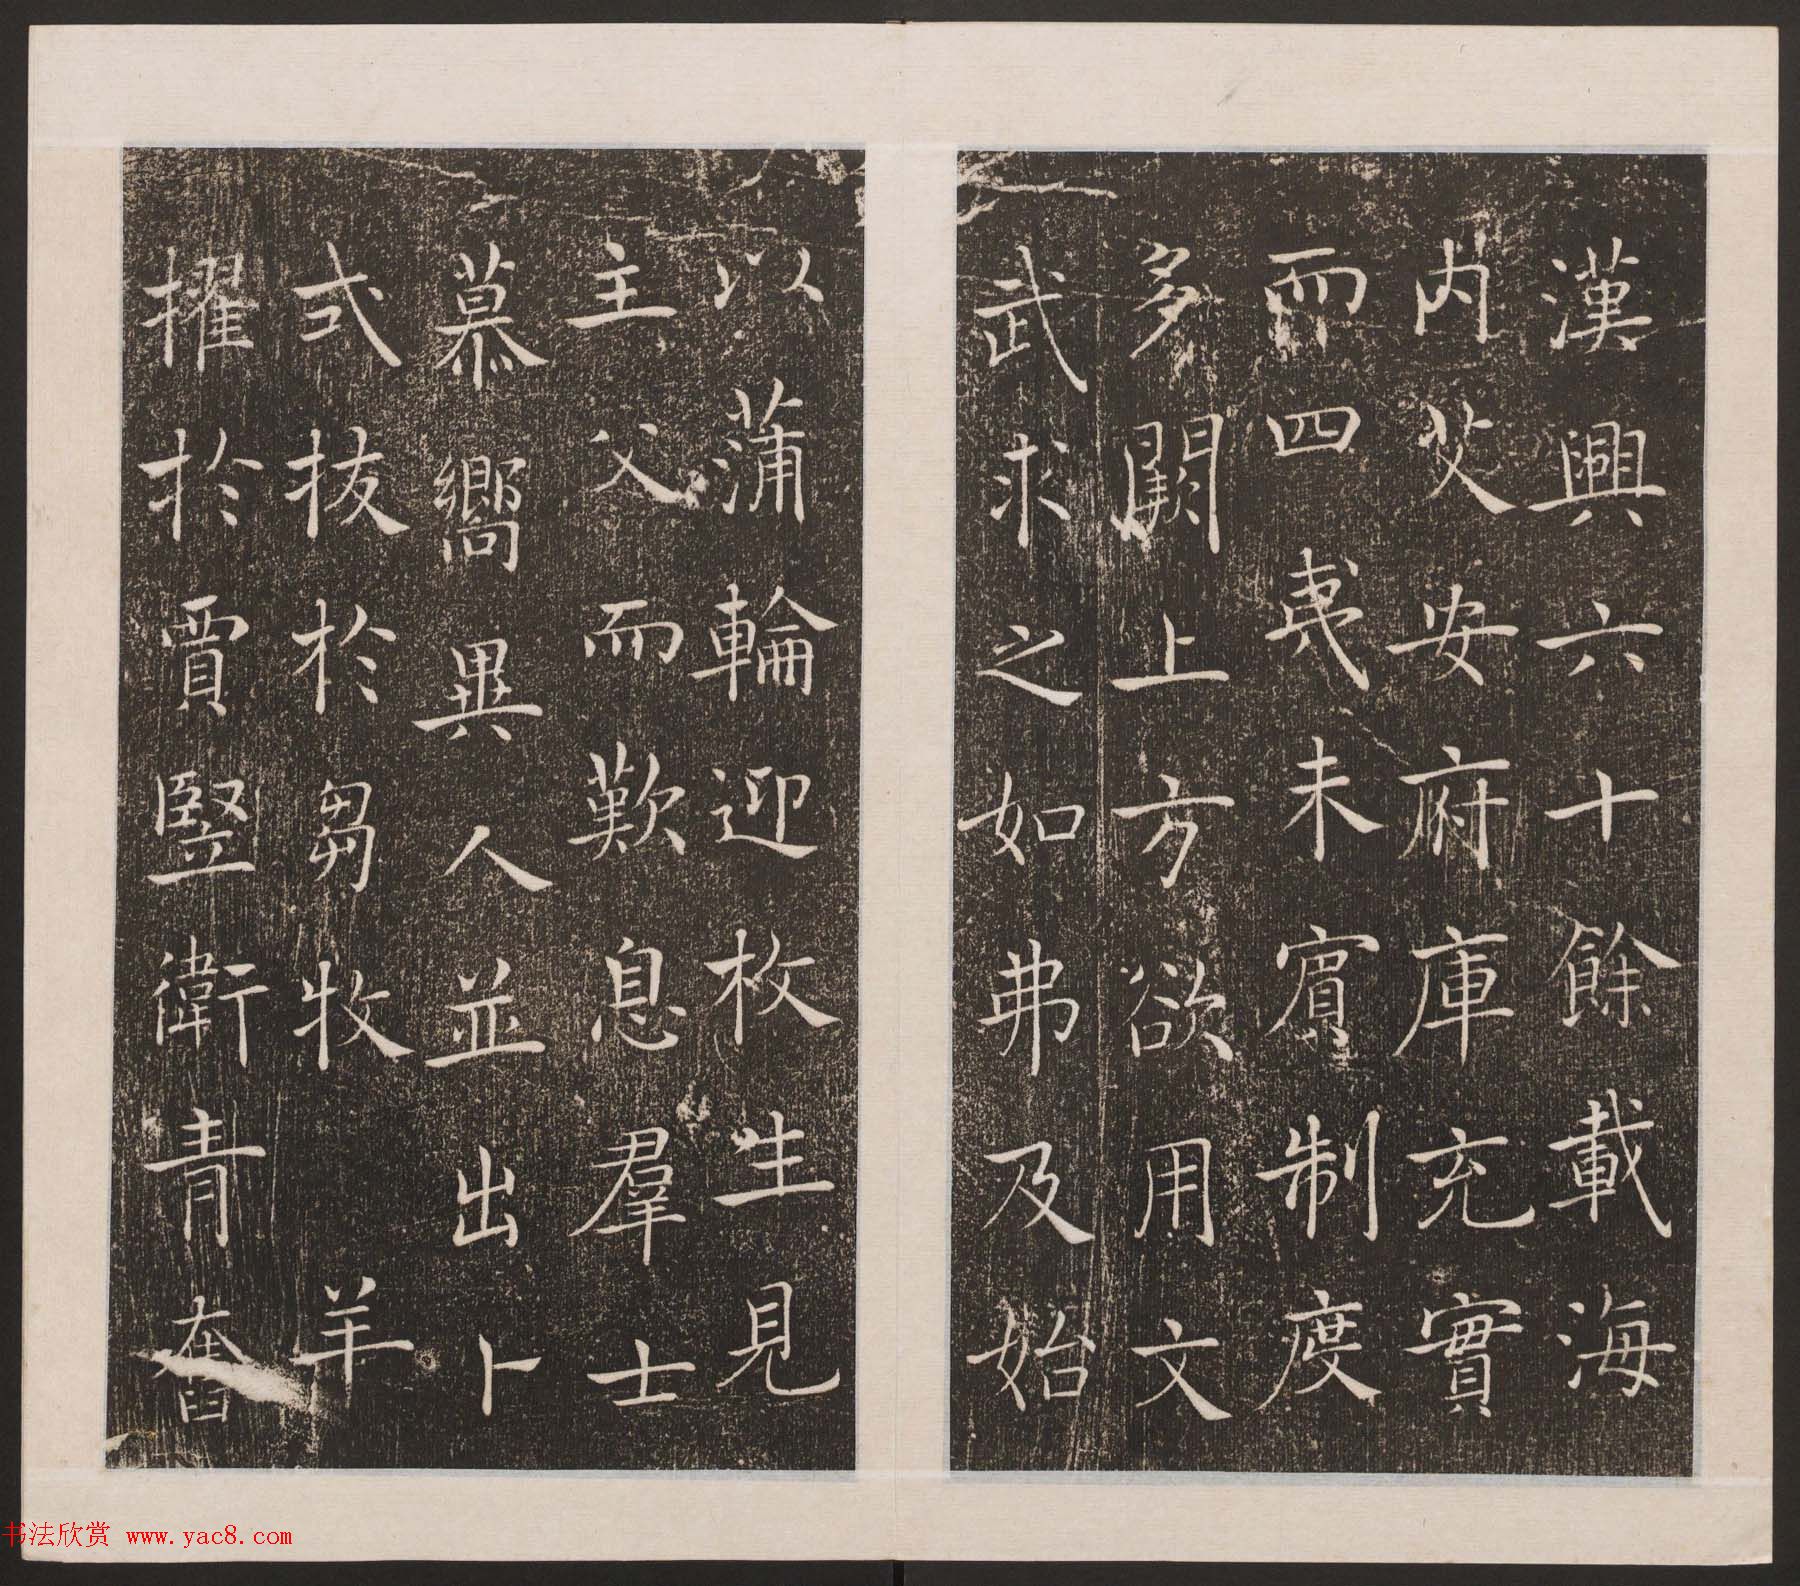 漢興六十餘載海
内艾安府庫充實
而四夷未賓制度
多闕上方欲用文
武求之如弗及始
以蒲輪迎枚生見
主父而歎息羣士
慕嚮異人並出卜
式拔於芻牧羊
擢於賈豎衛青奮
书法欣赏 www.yac8.com